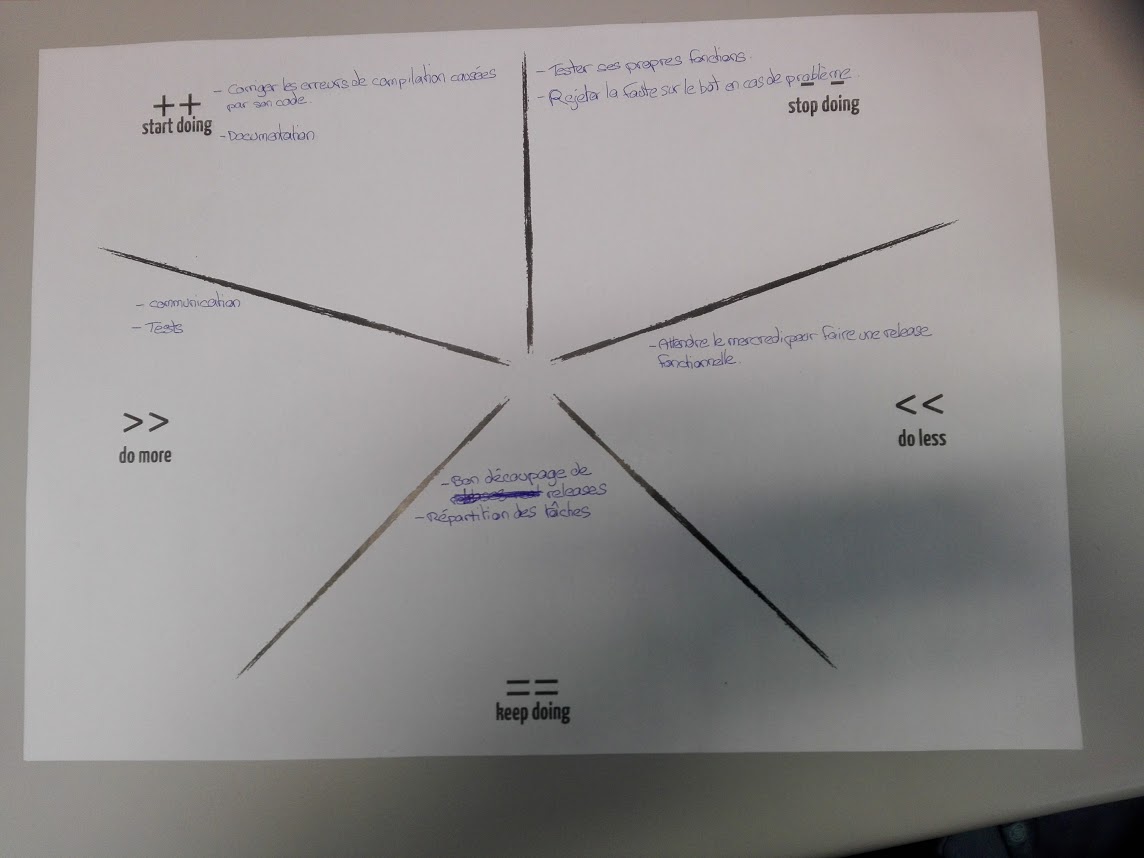 ++
start doing
- Corriger les erreurs de compilation causées
par son code.
- Documentation
- Tester ses propres fonctions.
- Rejeter la faute sur le bot en cas de problème.
--
stop doing
- communication
- Tests
>>
do more
- Attendre le mercredi pour faire une release
fonctionnelle.
<<
do less
- Bon découpage de
releases
- Répartition des tâches
==
keep doing